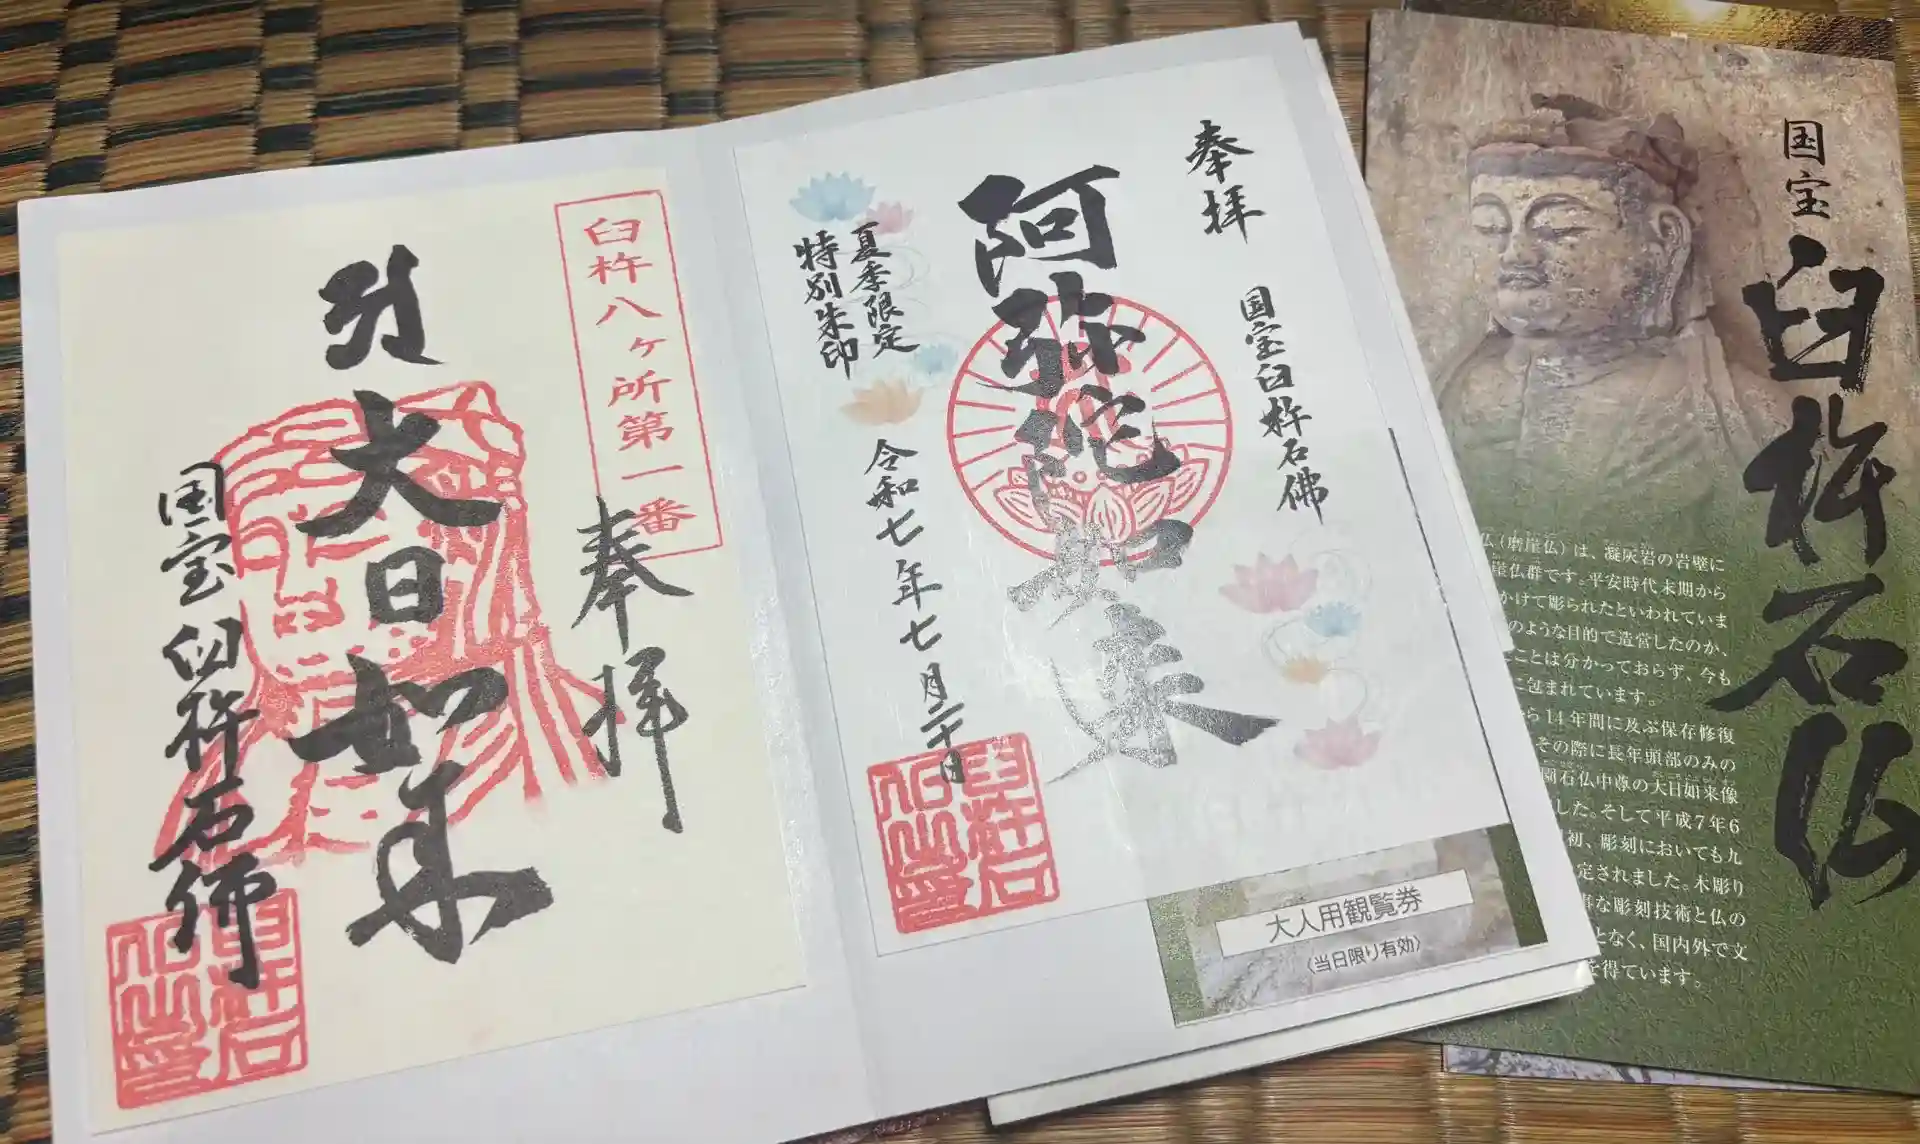 臼杵八ヶ所第一番
奉拝
大日如来
国宝臼杵石佛
奉拝
国宝臼杵石佛
阿弥陀如来
夏季限定
特別朱印
令和七年七月二十日
大人用観覧券
(当日限り有効)
国宝
臼杵石仏
仏(磨崖仏)は、凝灰岩の岩壁に
崖仏群です。平安時代末期から
かけて彫られたといわれていま
のような目的で造営したのか、
ことは分かっておらず、今も
に包まれています。
ら14年間に及ぶ保存修復
その際に長年頭部のみの
園石仏中尊の大日如来像
した。そして平成7年6
初、彫刻においても九
定されました。木彫り
な彫刻技術と仏の
となく、国内外で文
を得ています。